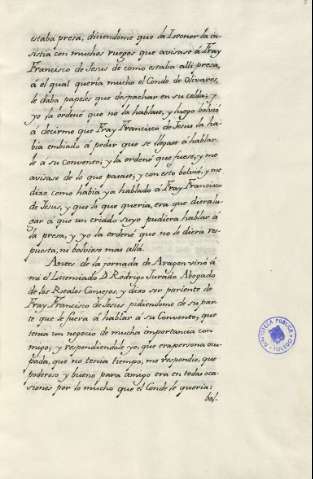 estaba presa, diciendome que la Leonor la in-
sistia con muchos ruegos que avisase á Fray
Francisco de Jesus de como estaba alli presa,
á el qual queria mucho el Conde de Olivares,
le daba papeles que despachar en su celda; y
yo la ordené que no la hablase, y luego bolvió
á decirme que Fray Francisco de Jesus la ha-
bia embiado á pedir que se llegase á hablar-
le á su Convento; y la ordené que fuese, y me
avisase de lo que pasase, y con esto bolvió, y me
dixo como habia ya hablado á Fray Francisco
de Jesus, y que lo que queria, era que diera lu-
gar á que un criado suyo pudiera hablar á
la presa, y yo la ordené que no le diera res-
puesta, ni bolviese mas allá.
Antes de la jornada de Aragon vino á
mi el Licenciado D. Rodrigo Jurado Abogado
de los Reales Consejos, y dixo ser pariente de
Fray Francisco de Jesus pidiendome de su par-
te que le fuera á hablar á su Convento, que
tenia un negocio de mucha importancia con-
migo, y respondiendole yo, que era persona ocu-
pada, que no tenia tiempo, me respondió, que
poderoso y bueno para amigo era en todas oca-
siones por lo mucho que el Conde le queria:
bol.
BIBLIOTECA PUBLICA